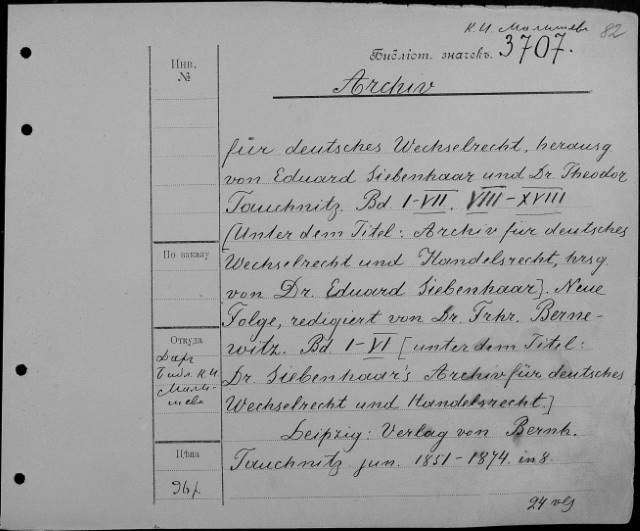 К.И. Малышева 82
Библіот. значекъ. 3707.
Инв. №
Archiv
für deutsches Wechselrecht, herausg.
von Eduard Siebenhaar und Dr. Theodor
Tauchnitz. Bd I-VII. VIII-XVIII
[Unter dem Titel: Archiv für deutsches
По заказу
Wechselrecht und Handelsrecht, hrsg.
von Dr. Eduard Siebenhaar]. Neue
Folge, redigiert von Dr. Frhr. Berne-
witz. Bd I-VI [unter dem Titel:
Dr. Siebenhaar's Archiv für deutsches
Wechselrecht und Handelsrecht.]
Откуда
Даръ
Библ. К.И.
Малы-
шева
Leipzig: Verlag von Bernh.
Tauchnitz jun. 1851-1874. in 8.
Цѣна
96
24 vls